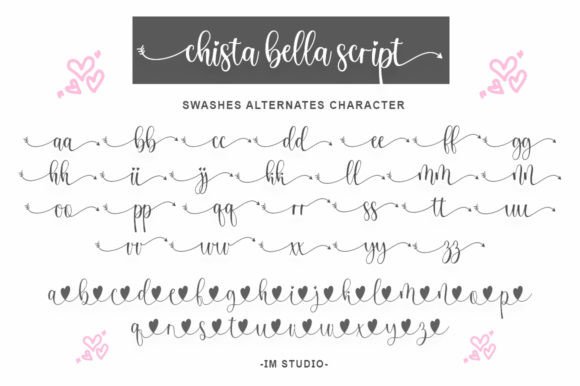 chista bella script
SWASHES ALTERNATES CHARACTER
aa bb cc dd ee ff gg
hh ii jj kk ll mm nn
oo pp qq rr ss tt uu
vv ww xx yy zz
a b c d e f g h i j k l m n o p
q r s t u v w x y z
-IM STUDIO-